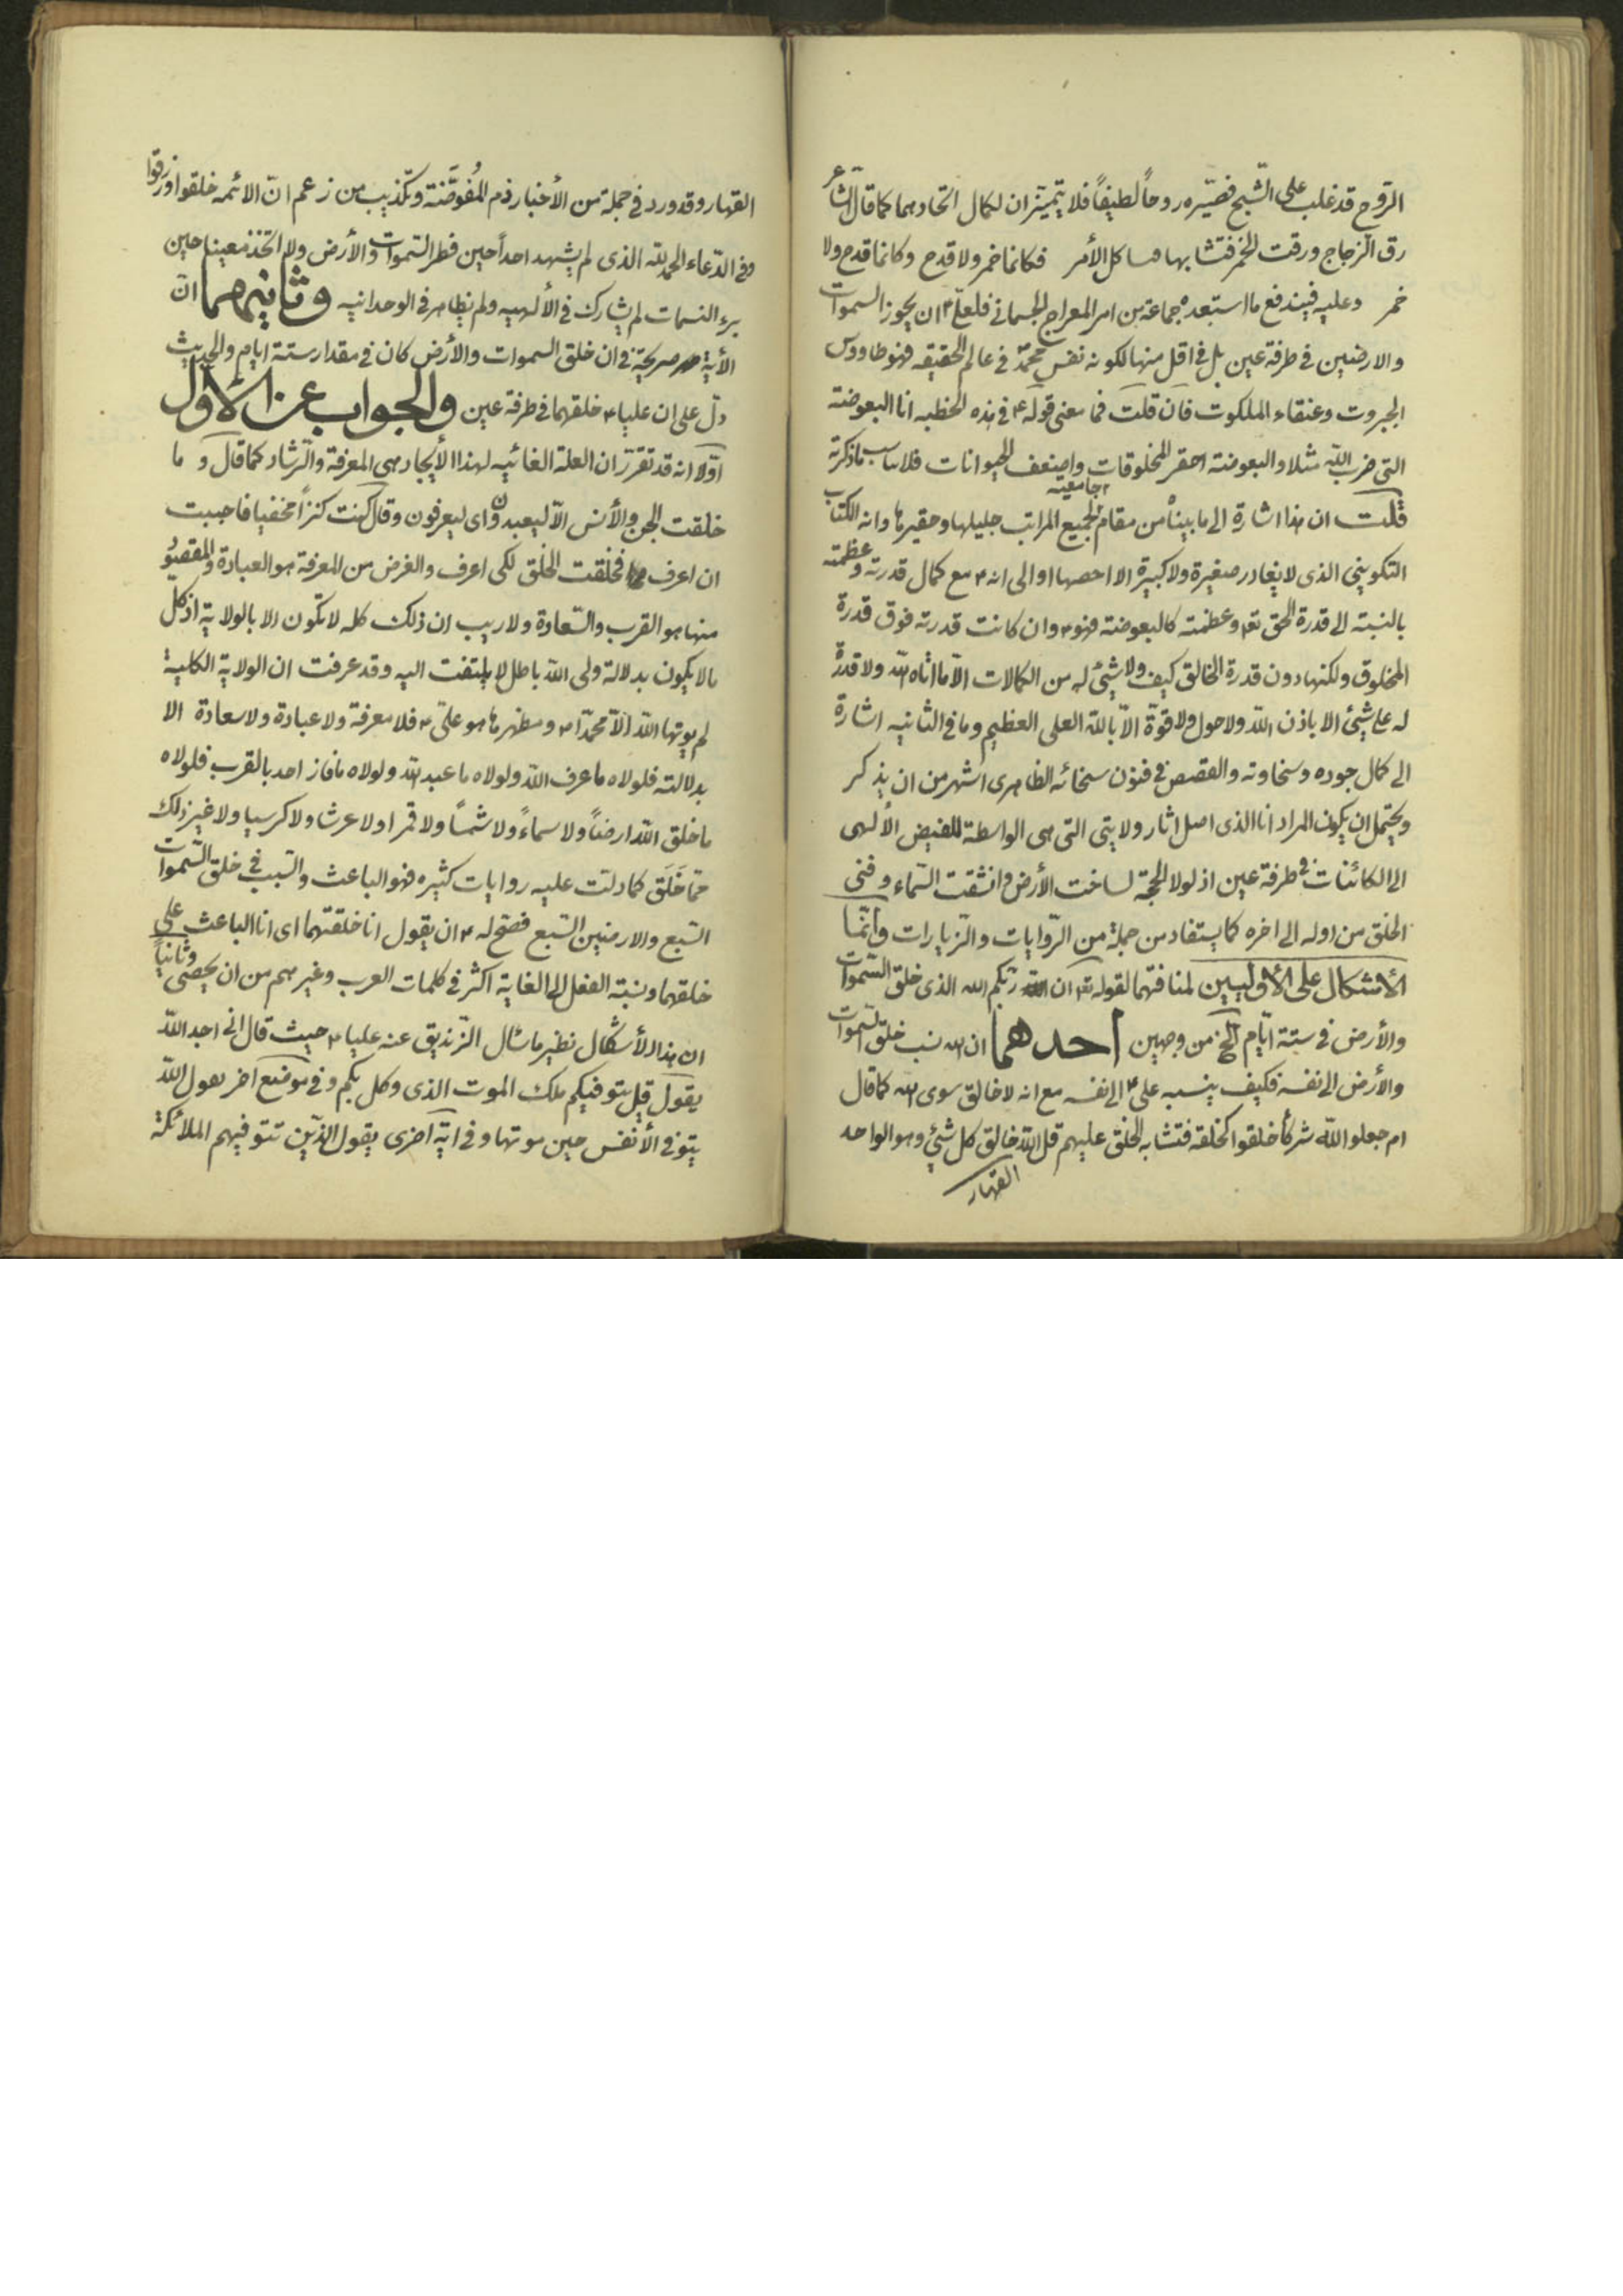 الروح قد غلب على الشبح فصيّره روحاً لطيفاً فلا يتميّزان لكمال اتحادهما كما قال الشاعر
رق الزجاج ورقت الخمر فتشابها فتشاكل الأمر فكانما خمر ولا قدح وكانما قدح ولا
خمر وعليه فيندفع ما استبعده جماعة من امر المعراج الجسمانى فلعلي ع ان يجوز السموات
والارضين فى طرفة عين بل فى اقل منها لكونه نفس محمّد فى عالم الحقيقه فهو طاووس
الجبروت وعنقاء الملكوت فان قلت فما معنى قوله ع فى هذه الخطبه انا البعوضة
التى ضرب الله مثلا والبعوضة احقر المخلوقات واضعف الحيوانات فلا يناسب ماذكرته
قلت ان هذا اشارة الى ما بيناه من مقام جامعيته لجميع المراتب جليلها وحقيرها وانه الكتاب
التكوينى الذى لا يغادر صغيرة ولا كبيرة الا احصها او الى انه ع مع كمال قدرته وعظمته
بالنسبة الى قدرة الحق تع وعظمته كالبعوضة فهو ع وان كانت قدرته فوق قدرة
المخلوق ولكنها دون قدرة الخالق كيف ولا شئ له من الكمالات الّا ما اتاه الله ولا قدرة
له على شئ الا باذن الله ولا حول ولا قوّة الّا بالله العلى العظيم وما فى الثانيه اشارة
الى كمال جوده وسخاوته والقصص فى فنون سخائه الظاهرى اشهر من ان يذكر
ويحتمل ان يكون المراد انا الذى اصل اثار ولايتى التى هى الواسطة للفيض الألهى
الى الكائنات فى طرفة عين اذ لولا الحجّة لساخت الأرض وانشقت السّماء وفنى
الخلق من اوله الى اخره كما يستفاد من جملة من الرّوايات والزّيارات وامّا
الأشكال على الأوليين لمنافتهما لقوله تع ان ربّكم الله الذى خلق السّموات
والأرض فى ستة ايّام الخ من وجهين احدهما ان الله نسب خلق السّموات
والأرض الى نفسه فكيف ينسبه على ع الى نفسه مع انه لا خالق سوى الله كما قال
ام جعلوا الله شركأ خلقوا كخلقه فتشابه الخلق عليهم قل الله خالق كل شئ وهو الواحد
القهار
القهار وقد ورد فى جملة من الأخبار ذم المُفوّضَة وتكذيب من زعم انّ الائمه خلقوا ورزقوا
وفى الدّعاء الحمد لله الذى لم يشهد احداً حين فطر السّموات والأرض ولا اتخذ معينا حين
برء النسمات لم يشارك فى الألهيه ولم يظاهر فى الوحدانيه وثانيهما انّ
الأية صريحة فى ان خلق السموات والأرض كان فى مقدار ستة ايام والحديث
دلّ على ان عليا ع خلقهما فى طرفة عين والجواب عن الأول
اوّلا انه قد تقرّر ان العلة الغائيه لهذا الأيجاد هى المعرفة والرّشاد كما قال وما
خلقت الجن والأنس الّا ليعبدون اى ليعرفون وقال كنت كنزاً مخفيا فاحببت
ان اعرف فخلقت الخلق لكى اعرف والغرض من المعرفة هو العبادة والمقصو
منها هو القرب والسّعادة ولا ريب ان ذلك كله لا تكون الا بالولاية اذ كلّ
ما لا يكون بدلالة ولى الله باطل لا يلتفت اليه وقد عرفت ان الولاية الكلية
لم يوتها الله الّا محمّدا ص ومظهرها هو علىّ ع فلا معرفة ولا عبادة ولا سعادة الا
بدلالته فلولاه ما عرف الله ولولاه ما عبد الله ولولاه ما فاز احد بالقرب فلولاه
ما خلق الله ارضاً ولا سماءً ولا شمسًا ولا قمرا ولا عرشا ولا كرسيا ولا غير ذلك
ممّا خَلَق كما دلت عليه روايات كثيره فهو الباعث والسّبب فى خلق السّموات
السّبع والارضين السّبع فصحّ له ع ان يقول انا خلقتهما اى انا الباعث على
خلقهما ونسبة الفعل الى الغاية اكثر فى كلمات العرب وغيرهم من ان يحصى وثانياً
ان هذا الأشكال نظير ما سئال الزّنديق عنه عليا ع حيث قال انى اجد الله
يقول قل يتوفيكم ملك الموت الذى وكل بكم وفى موضع اخر يقول الله
يتوفى الأنفس حين موتها وفى اية اخرى يقول الذّين تتوفيهم الملائكة